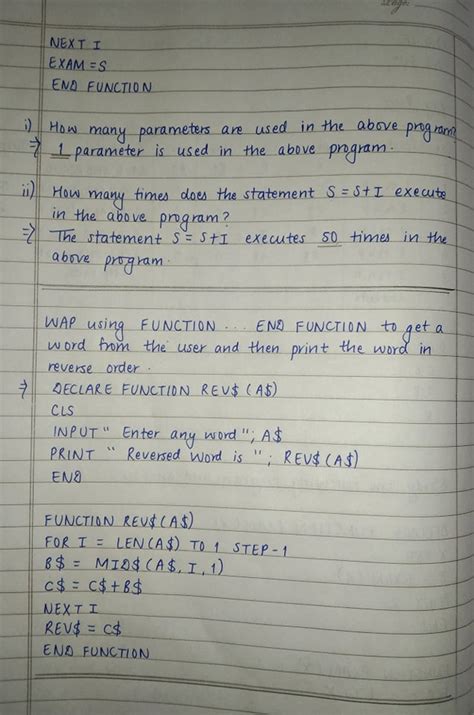 Page:
NEXT I
EXAM = S
END FUNCTION
i) How many parameters are used in the above program?
⇒ 1 parameter is used in the above program.
ii) How many times does the statement S = S+I execute
in the above program?
⇒ The statement S = S+I executes 50 times in the
above program.
WAP using FUNCTION ... END FUNCTION to get a
word from the user and then print the word in
reverse order.
⇒ DECLARE FUNCTION REV$ (A$)
CLS
INPUT " Enter any word"; A$
PRINT " Reversed Word is "; REV$ (A$)
END
FUNCTION REV$ (A$)
FOR I = LEN(A$) TO 1 STEP -1
B$ = MID$ (A$, I, 1)
C$ = C$ + B$
NEXT I
REV$ = C$
END FUNCTION